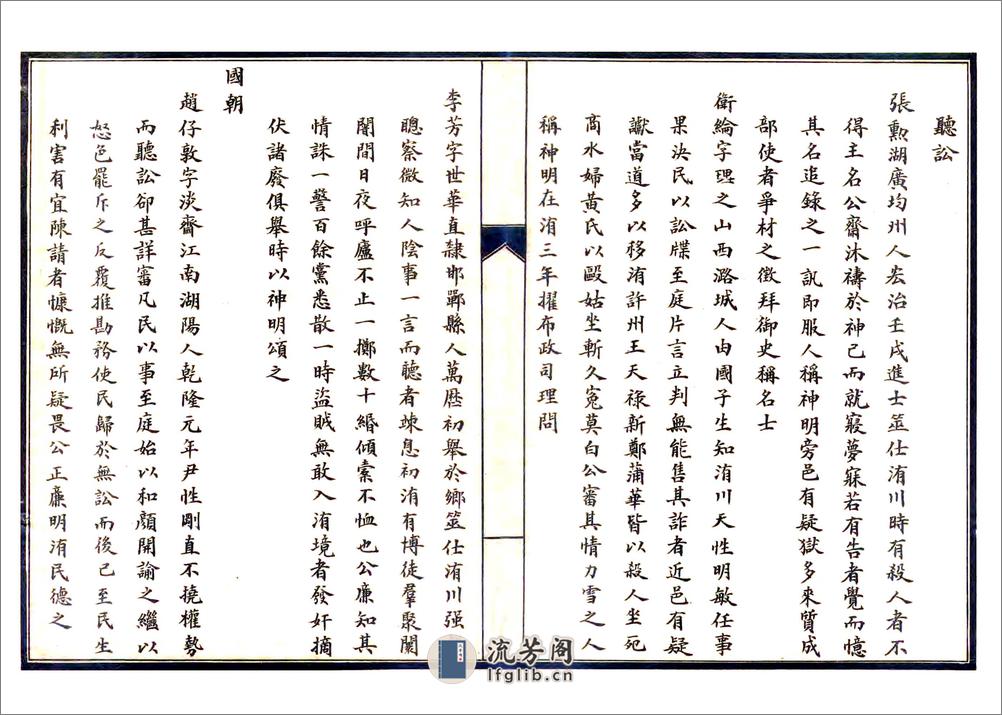 聽訟
張勲湖廣均州人宏治壬戌進士筮仕洧川時有殺人者不
得主名公齋沐禱於神已而就寢夢寐若有告者覺而憶
其名追錄之一訊即服人稱神明旁邑有疑獄多来質成
部使者爭材之徵拜御史稱名士
衛綸字理之山西潞城人由國子生知洧川天性明敏任事
果決民以訟牒至庭片言立判無能售其詐者近邑有疑
讞當道多以移洧許州王天祿新鄭蒲華皆以殺人坐死
商水婦黃氏以毆姑坐斬久寃莫白公審其情力雪之人
稱神明在洧三年擢布政司理問
李芳字世華直隸邯鄲縣人萬歷初舉於鄉筮仕洧川强
聰察微知人陰事一言而聽者竦息初洧有博徒羣聚闤
闠間日夜呼廬不止一擲數十緡傾橐不恤也公廉知其
情誅一警百餘黨悉散一時盜賊無敢入洧境者發奸摘
伏諸廢俱舉時以神明頌之
國朝
趙仔敦字淡齋江南湖陽人乾隆元年尹性剛直不撓權勢
而聽訟卻甚詳審凡民以事至庭始以和顏開諭之繼以
怒色罷斥之反覆推勘務使民歸於無訟而後已至民生
利害有宜陳請者慷慨無所疑畏公正廉明洧民德之
流芳阁
lfglib.cn